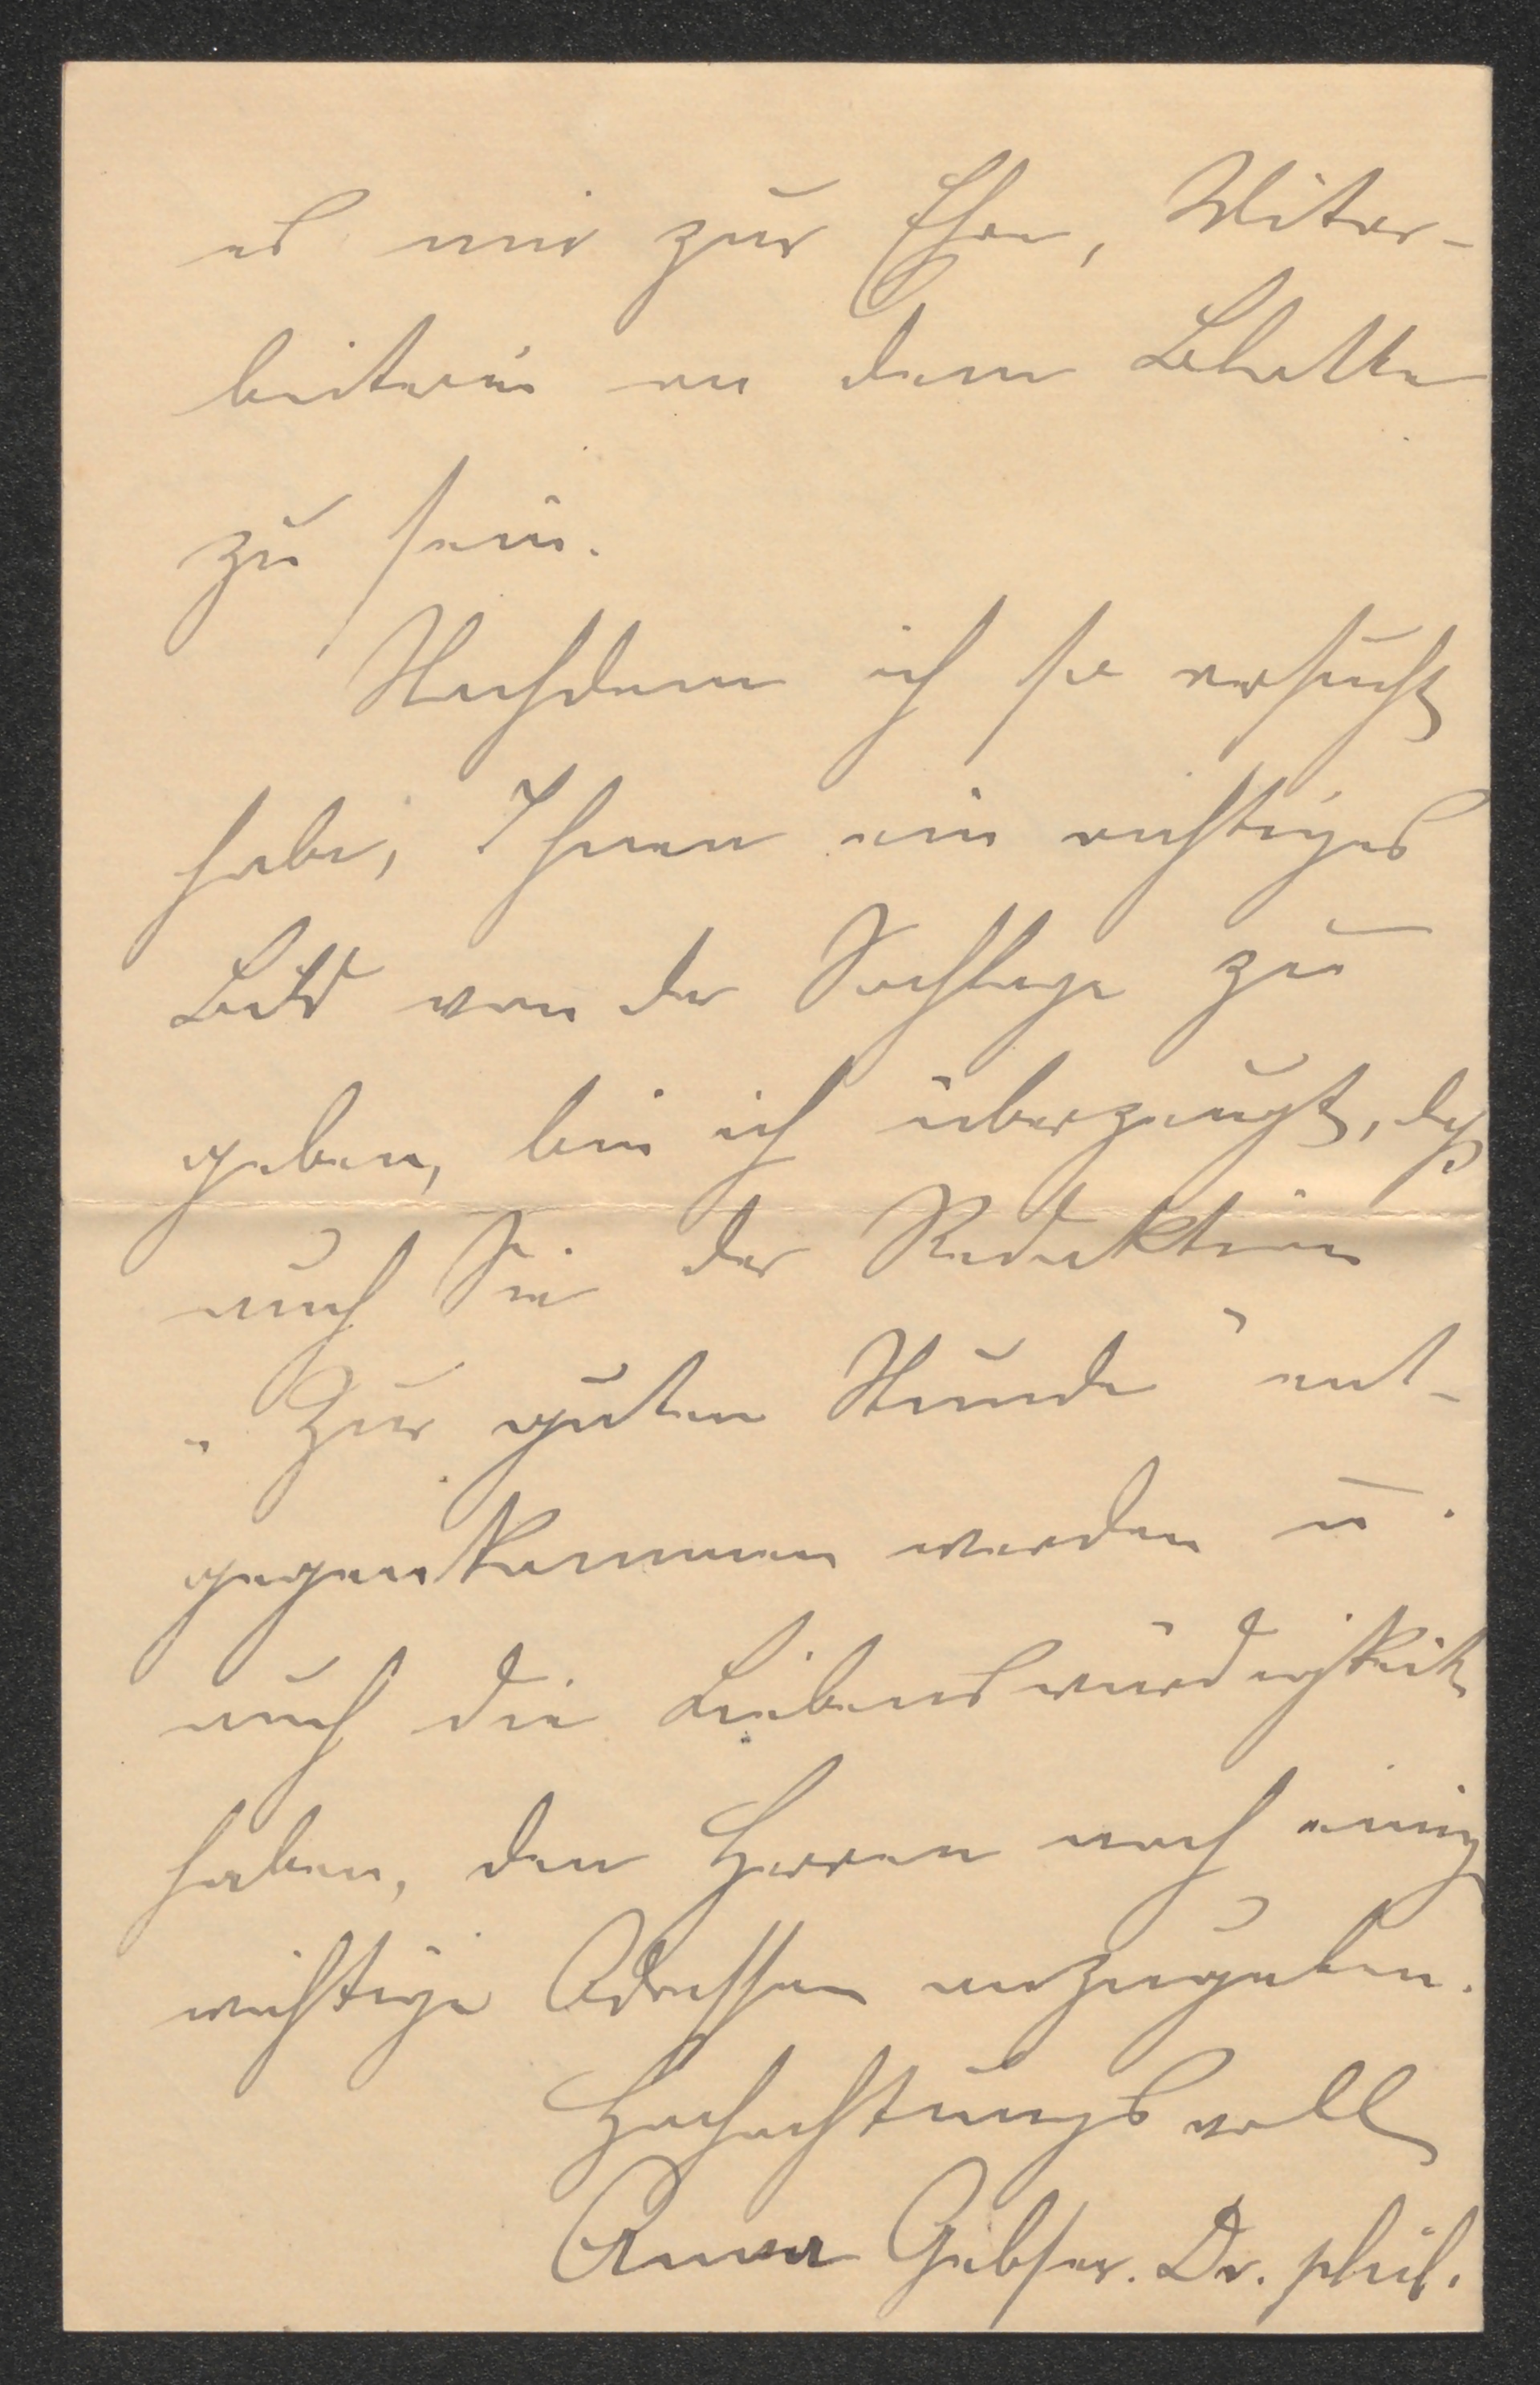 es mir zur Ehre, Mitar-
beiterin an dem Blatte
zu sein.
Nachdem ich so versucht
habe, Ihnen ein richtiges
Bild von der Sachlage zu
geben, bin ich überzeugt, daß
auch Sie der Redaktion
„Zur guten Stunde" ent-
gegenkommen werden u.
auch die Liebenswürdigkeit
haben, den Herren noch einige
wichtige Adressen anzugeben.
Hochachtungsvoll
Anna Gebser. Dr. phil.